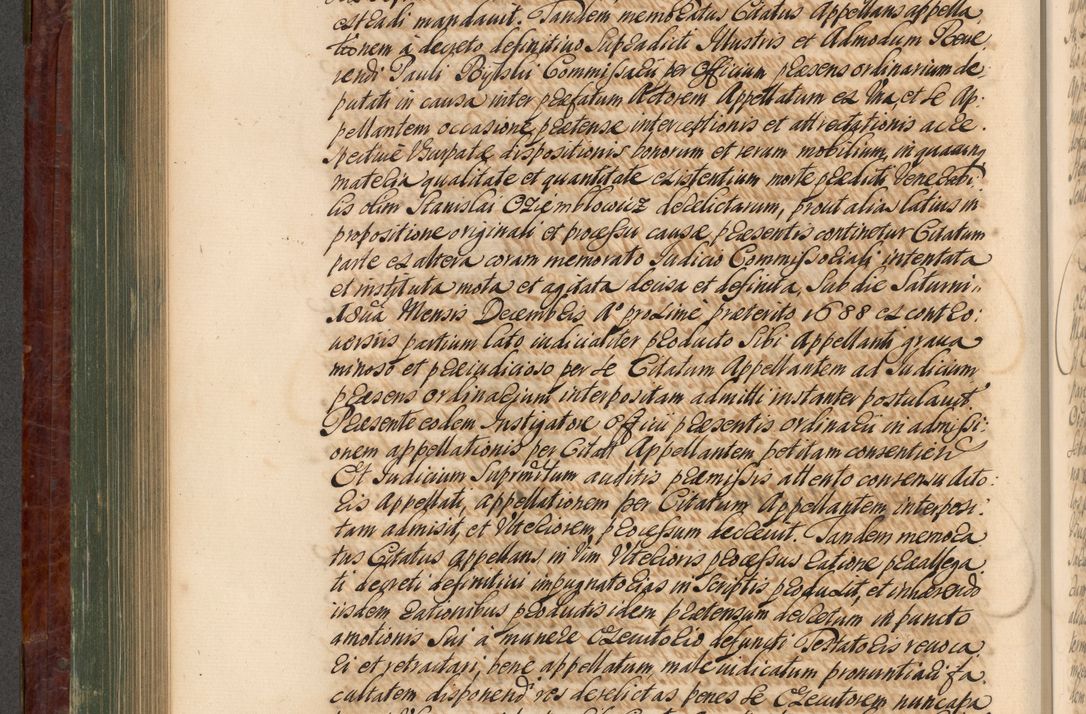 est eadi mandavit. Tandem memoratus Citatus Appellans appella
tionem à decreto definitivo Supradicti Illustris et Admodum Reve
rendi Pauli Bylslii Commissarii per Officium praesens ordinarium de
putati in causa inter praefatum Actorem Appellatum ex Una, et se Ap:
pellantem occasione praetensae interceptionis et attrectationis ac re
spective Usurpatae dispositionis bonorum et rerum mobilium, in quacunq
materia qualitate et quantitate existentium morte praedicti Venerabi
lis olim Stanislai Oziemblowicz derelictarum, prout alias latius in
propositione originali et processu causae praesentis continetur Citatum
parte ex altera coram memorato Judicio Commissoriali intentata
et instituta mota et agitata decisa et definita, Sub die Saturni
Mensis Decembris A° proxime praeterito 1688 ex contro:
versiis partium lato iudicialiter producto Sibi Appellanti grava
minoso et praeiudicioso per se Citatum Appellantem ad Judicium
praesens ordinarium interpositam admitti instanter postulavit
Praesente eodem Instigatore officii praesentis ordinarii in admissi:
onem appellationis per Citatum Appellantem petitam consentien
Et Judicium Supremum auditis praemissis attento consensu Acto:
ris Appellati, appellationem per Citatum Appellantem interposi:
tam admisit, et Ulteriorem processum decrevit. Tandem memora
tus Citatus Appellans in Vim Ulterioris processus ratione praeallega
ti decreti definitivi impugnatorias in Scriptis produxit, et inhaerendo
iisdem rationibus productis idem praetensum decretum in puncto
amotionis Sui à munere executorio defuncti Testatoris revoca
ri et retractari, bene appellatum, male iudicatum pronuntiari fa
cultatem disponendi res derelictas penes se Executorem nuncupa